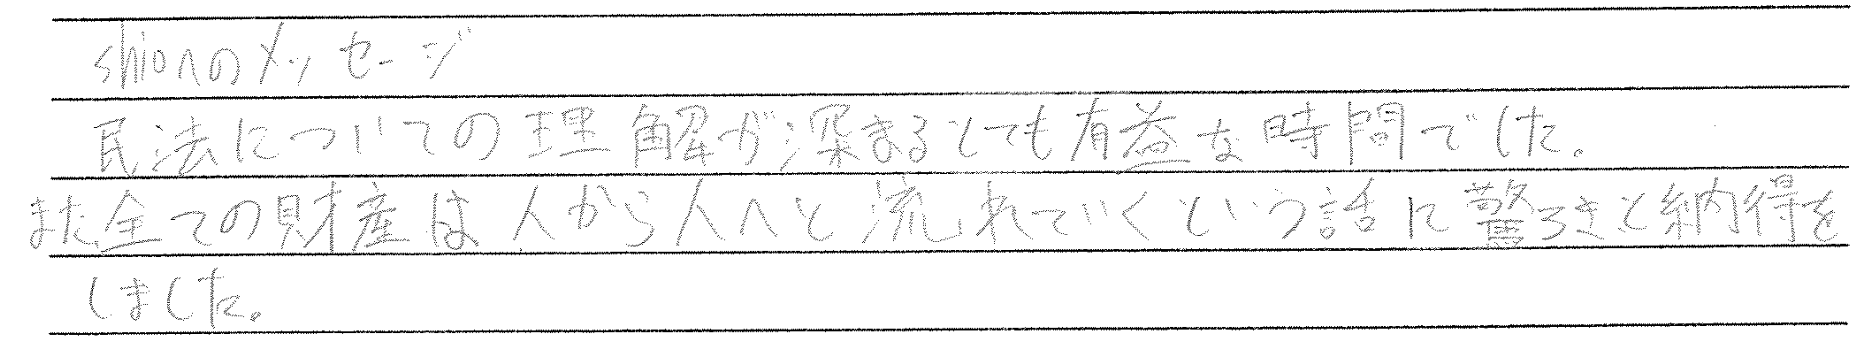 shioへのメッセージ
民法についての理解が深まるとても有益な時間でした。
また全ての財産は人から人へと流れていくという話に驚ろきと納得を
しました。